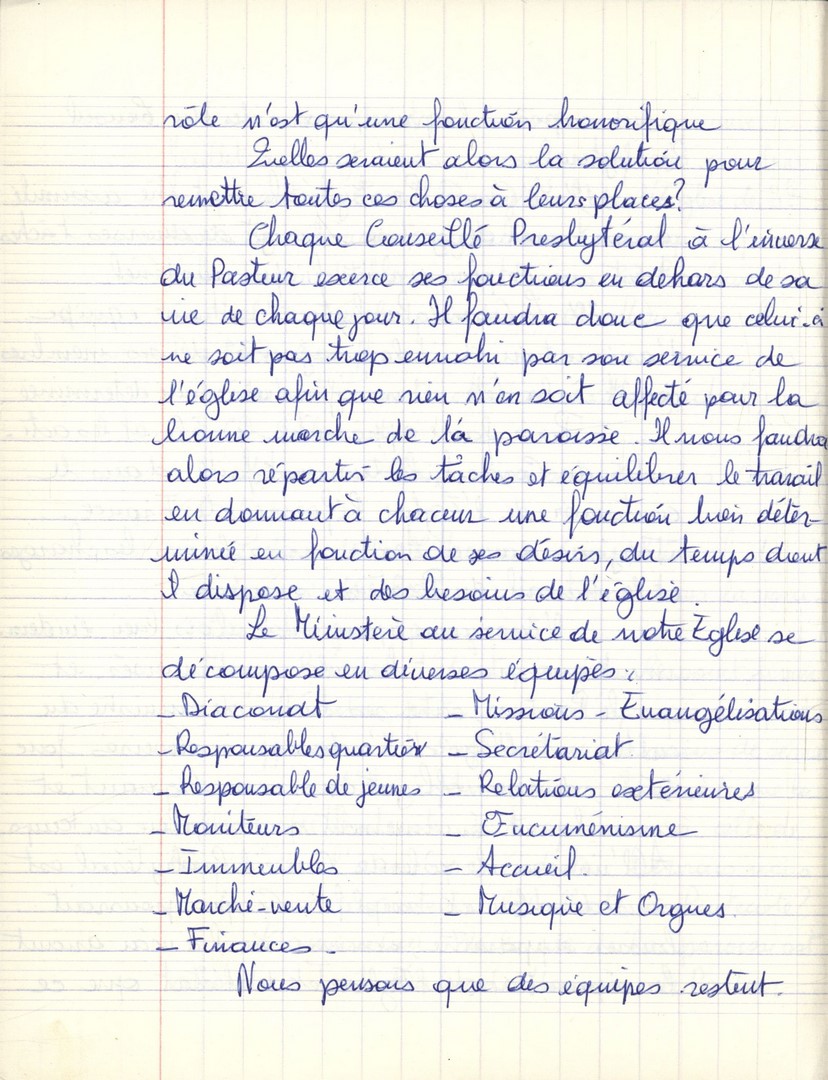 rôle n'est qu'une fonction honorifique
Quelles seraient alors la solution pour
remettre toutes ces choses à leurs places?
Chaque Conseillé Presbytéral à l'inverse
du Pasteur exerce ses fonctions en dehors de sa
vie de chaque jour. Il faudra donc que celui-ci
ne soit pas trop envahi par son service de
l'église afin que rien n'en soit affecté pour la
bonne marche de la paroisse. Il nous faudra
alors répartir les tâches et équilibrer le travail
en donnant à chacun une fonction bien déter-
minée en fonction de ses désirs, du temps dont
il dispose et des besoins de l'église.
Le Ministère au service de notre Eglise se
décompose en diverses équipes:
- Diaconat - Missions - Evangélisations
- Responsables quartier - Secrétariat
- Responsable de jeunes - Relations extérieures
- Moniteurs - Œcuménisme
- Immeubles - Accueil.
- Marché-vente - Musique et Orgues.
- Finances -
Nous pensons que des équipes restent.